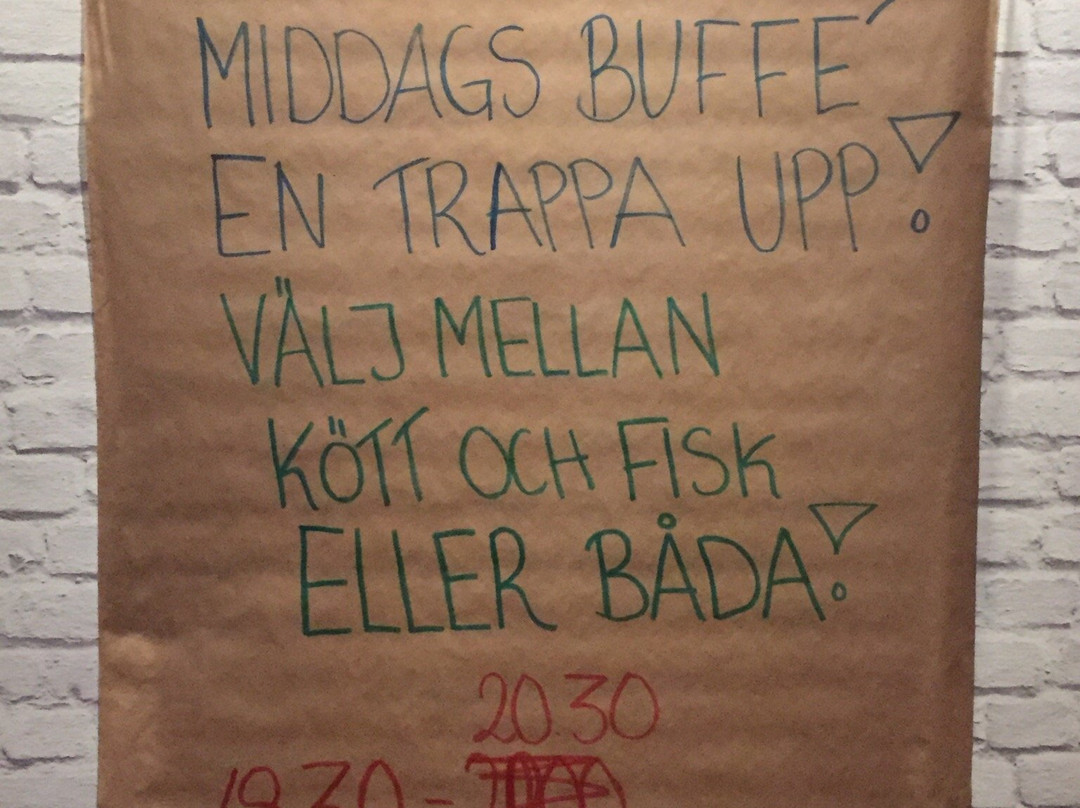 MIDDAGS BUFFÉ
EN TRAPPA UPP!
VÄLJ MELLAN
KÖTT OCH FISK
ELLER BÅDA!
20.30
19.30 -